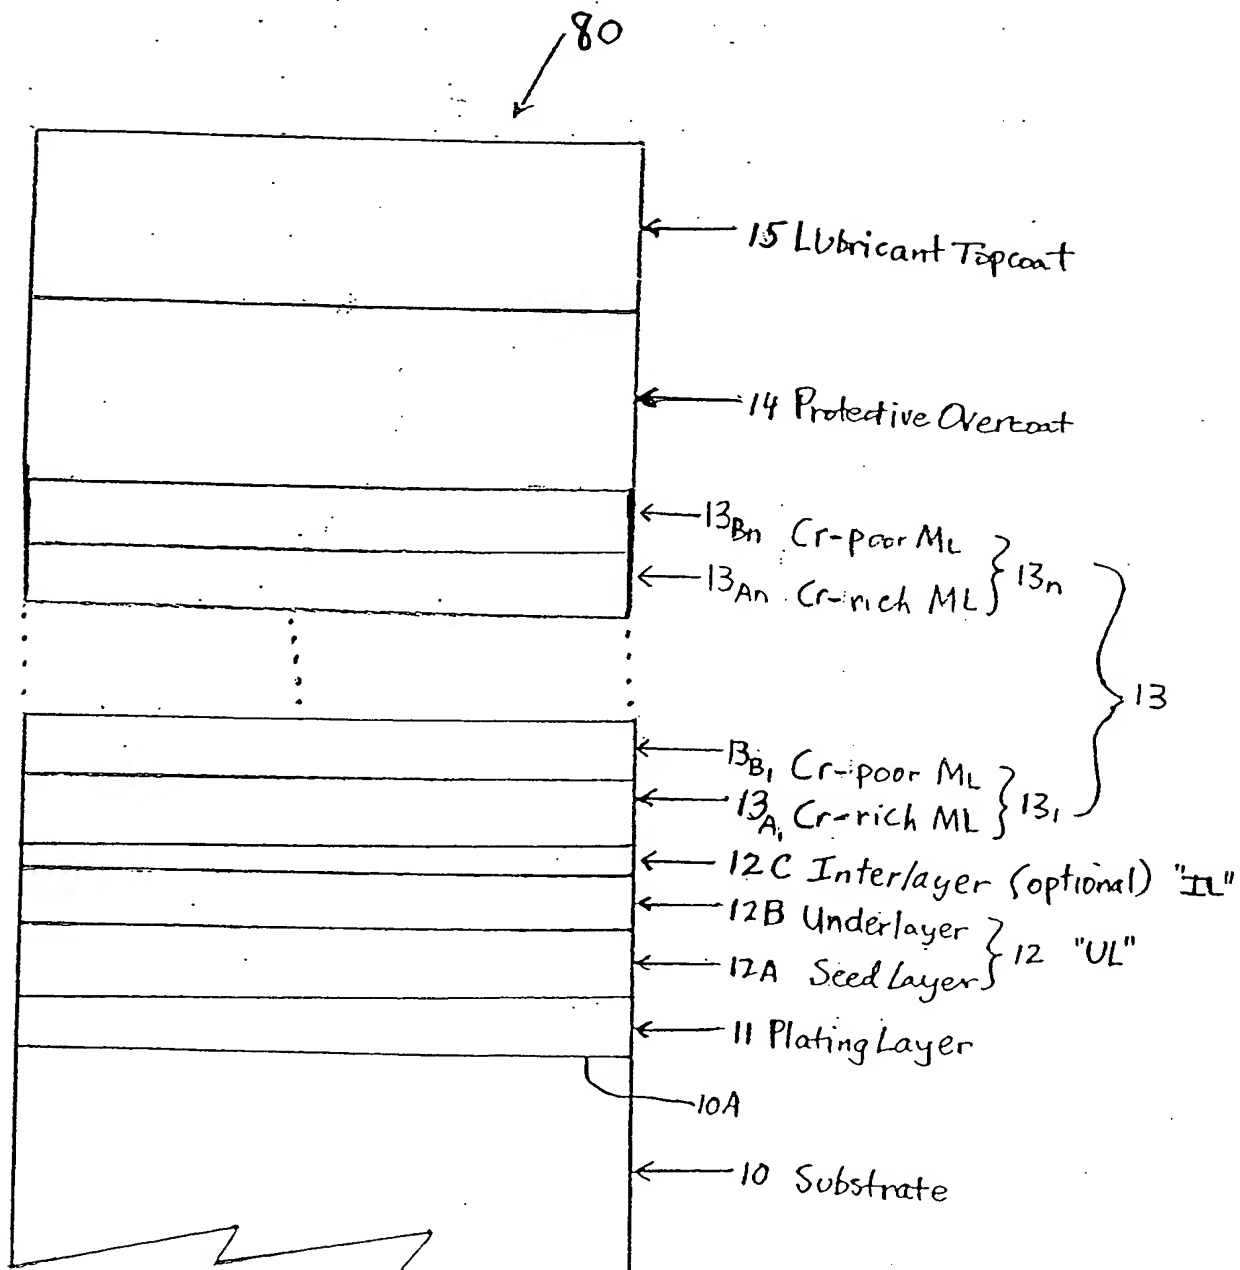 80
15 Lubricant Topcoat
14 Protective Overcoat
13Bn Cr-poor ML
13An Cr-rich ML
13n
13
13B1 Cr-poor ML
13A1 Cr-rich ML
131
12C Interlayer (optional) "IL"
12B Underlayer
12A Seed Layer
12 "UL"
11 Plating Layer
10A
10 Substrate